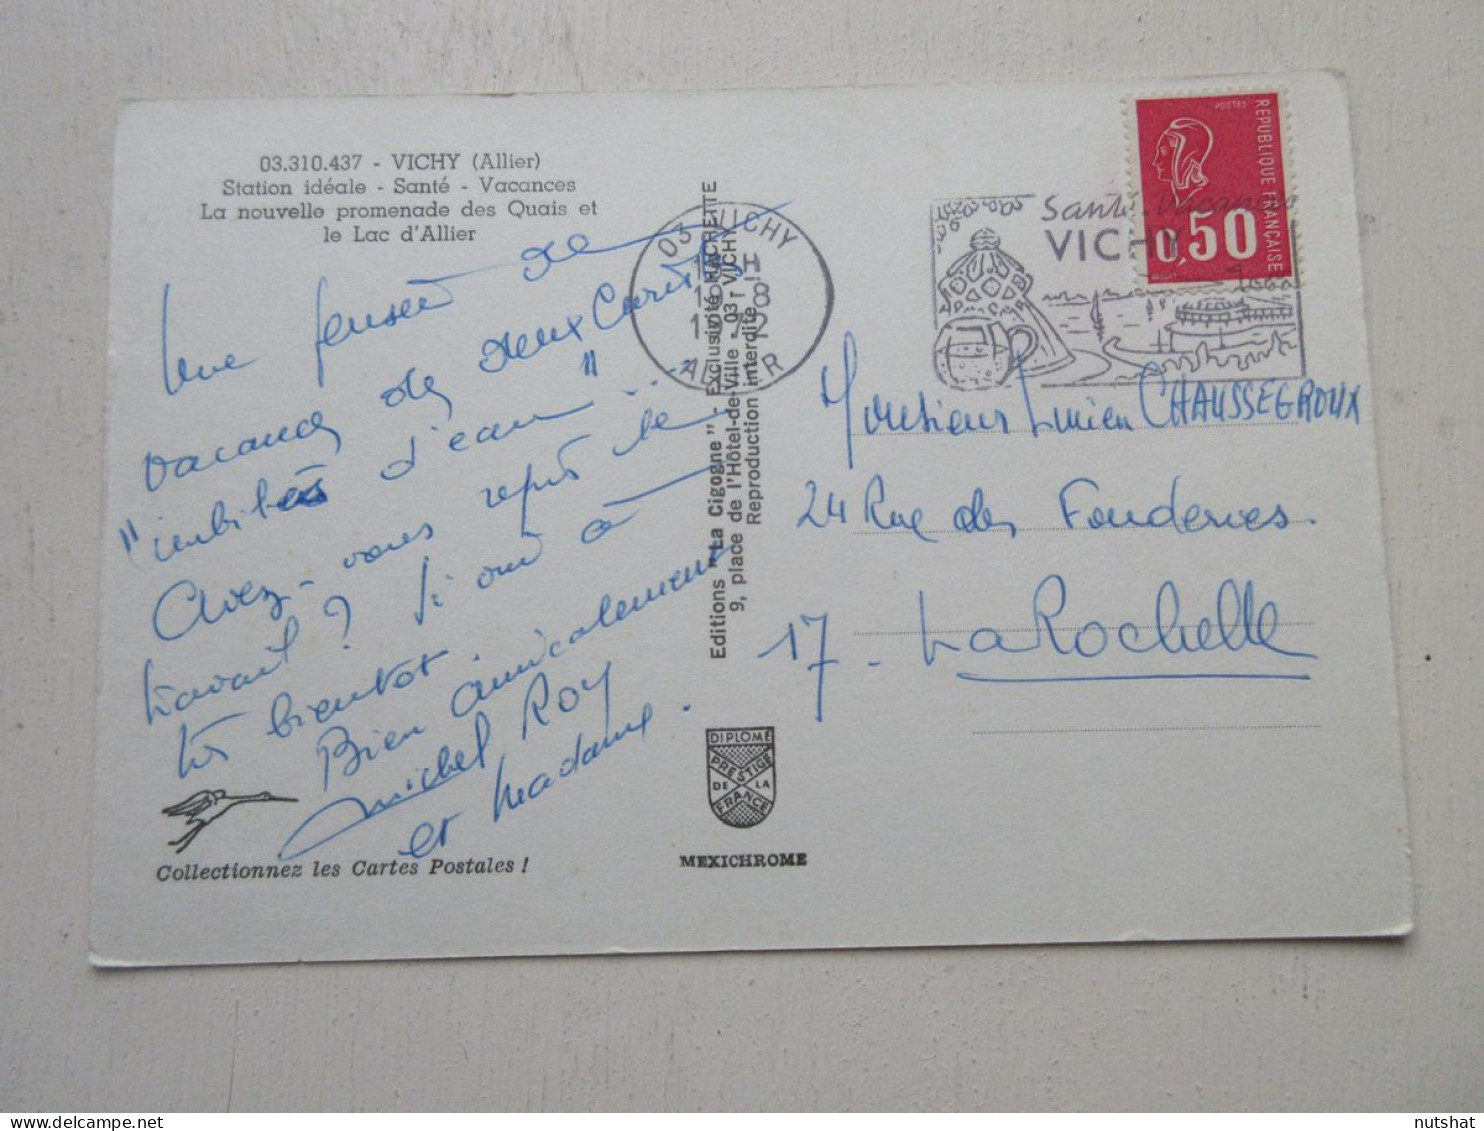 03.310.437 - VICHY (Allier)
Station idéale - Santé - Vacances
La nouvelle promenade des Quais et
le Lac d'Allier
Une pensée de
vacances de deux Curistes
"imbibés d'eau"
Avez-vous repris le
travail ? Si oui à
très bientôt.
Bien amicalement
Michel ROY
et Madame.
Collectionnez les Cartes Postales !
Editions "La Cigogne" Exclusivité HACHETTE
9, place de l'Hôtel-de-Ville - 03 - VICHY
Reproduction interdite
DIPLOME
PRESTIGE
DE LA
FRANCE
MEXICHROME
03 VICHY
ALLIER
Santé. Vacances
VICHY
POSTES
REPUBLIQUE FRANÇAISE
0,50
Monsieur Lucien CHAUSSEGROUX
24 Rue des Fonderies.
17 - La Rochelle
nutshat